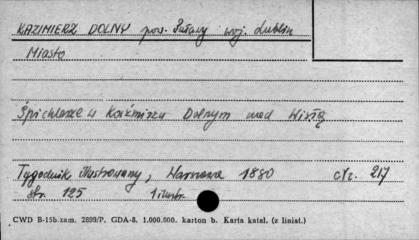 KAZIMIERZ DOLNY pow. Puławy woj. Lublin
Miasto
Śpichlerze w Kaźmirzu Dolnym nad Wisłą
Tygodnik Illustrowany, Warszawa 1880 Nr. 217
str. 125 1 ilustr.
CWD B-15b. zam. 2899/P. GDA-8. 1.000.000. karton b. Karta katal. (z liniat.)